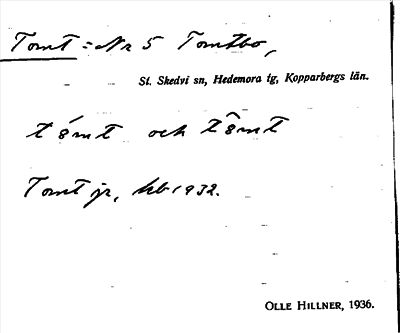 Tomt = Nr 5 Tomtbo,
St. Skedvi sn, Hedemora tg, Kopparbergs län.
och
Tomt jr, hb 1932.
OLLE HILLNER, 1936.